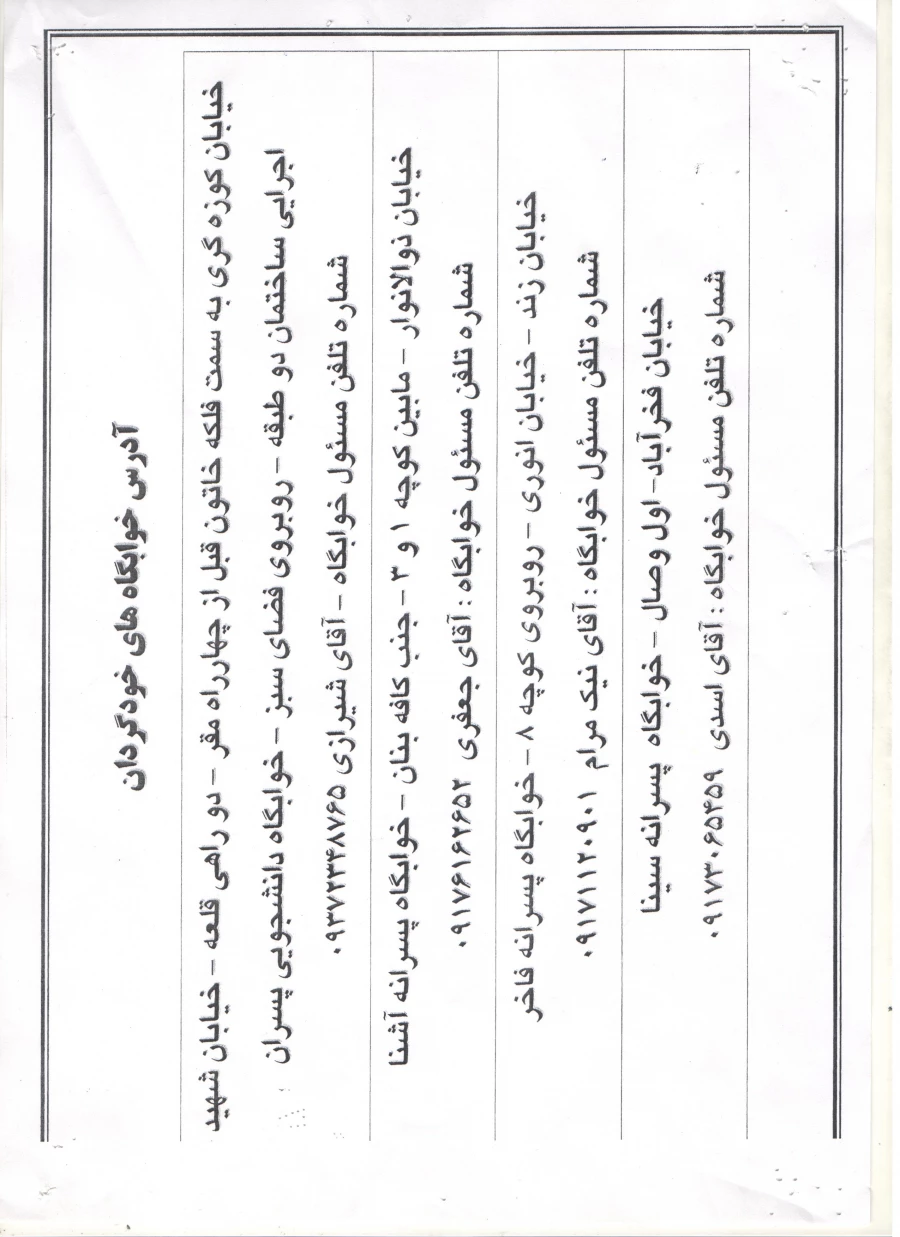 آدرس خوابگاه های خودگردان
خیابان کوزه گری به سمت فلکه خاتون قبل از چهارراه مقر - دو راهی قلعه - خیابان شهید
اجرایی ساختمان دو طبقه - روبروی فضای سبز - خوابگاه دانشجویی پسران
شماره تلفن مسئول خوابگاه - آقای شیرازی ۰۹۳۷۲۳۴۸۷۶۵
خیابان ذوالانوار - مابین کوچه ۱ و ۳ - جنب کافه بنان - خوابگاه پسرانه آشنا
شماره تلفن مسئول خوابگاه : آقای جعفری ۰۹۱۷۶۱۶۲۶۵۲
خیابان زند - خیابان انوری - روبروی کوچه ۸ - خوابگاه پسرانه فاخر
شماره تلفن مسئول خوابگاه : آقای نیک مرام ۰۹۱۷۱۱۲۰۹۰۱
خیابان فخرآباد- اول وصال - خوابگاه پسرانه سینا
شماره تلفن مسئول خوابگاه : آقای اسدی ۰۹۱۷۳۰۶۵۴۵۹